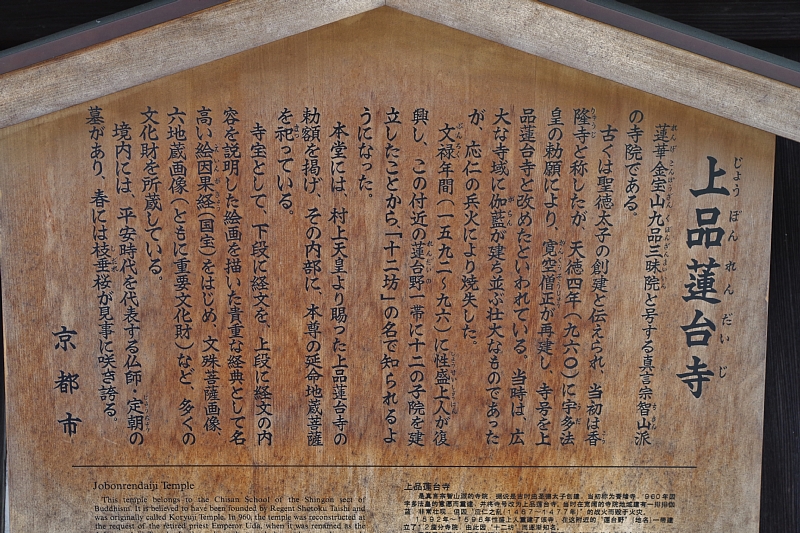 上品蓮台寺
じょうぼんれんだいじ
蓮華金宝山九品三昧院と号する真言宗智山派
の寺院である。
古くは聖徳太子の創建と伝えられ、当初は香
隆寺と称したが、天徳四年(九六〇)に宇多法
皇の勅願により、寛空僧正が再建し、寺号を上
品蓮台寺と改めたといわれている。当時は、広
大な寺域に伽藍が建ち並ぶ壮大なものであった
が、応仁の兵火により焼失した。
文禄年間(一五九二~九六)に性盛上人が復
興し、この付近の蓮台野一帯に十二の子院を建
立したことから、「十二坊」の名で知られるよ
うになった。
本堂には、村上天皇より賜った上品蓮台寺の
勅額を掲げ、その内部に、本尊の延命地蔵菩薩
を祀っている。
寺宝として、下段に経文を、上段に経文の内
容を説明した絵画を描いた貴重な経典として名
高い絵因果経(国宝)をはじめ、文殊菩薩画像、
六地蔵画像(ともに重要文化財)など、多くの
文化財を所蔵している。
境内には、平安時代を代表する仏師・定朝の
墓があり、春には枝垂桜が見事に咲き誇る。
京都市
Jobonrendaiji Temple
This temple belongs to the Chisan School of the Shingon sect of
Buddhism. It is believed to have been founded by Regent Shotoku Taishi and
was originally called Koryuji Temple. In 960, the temple was reconstructed at
the request of the retired priest Emperor Uda, when it was renamed as the
上品莲台寺